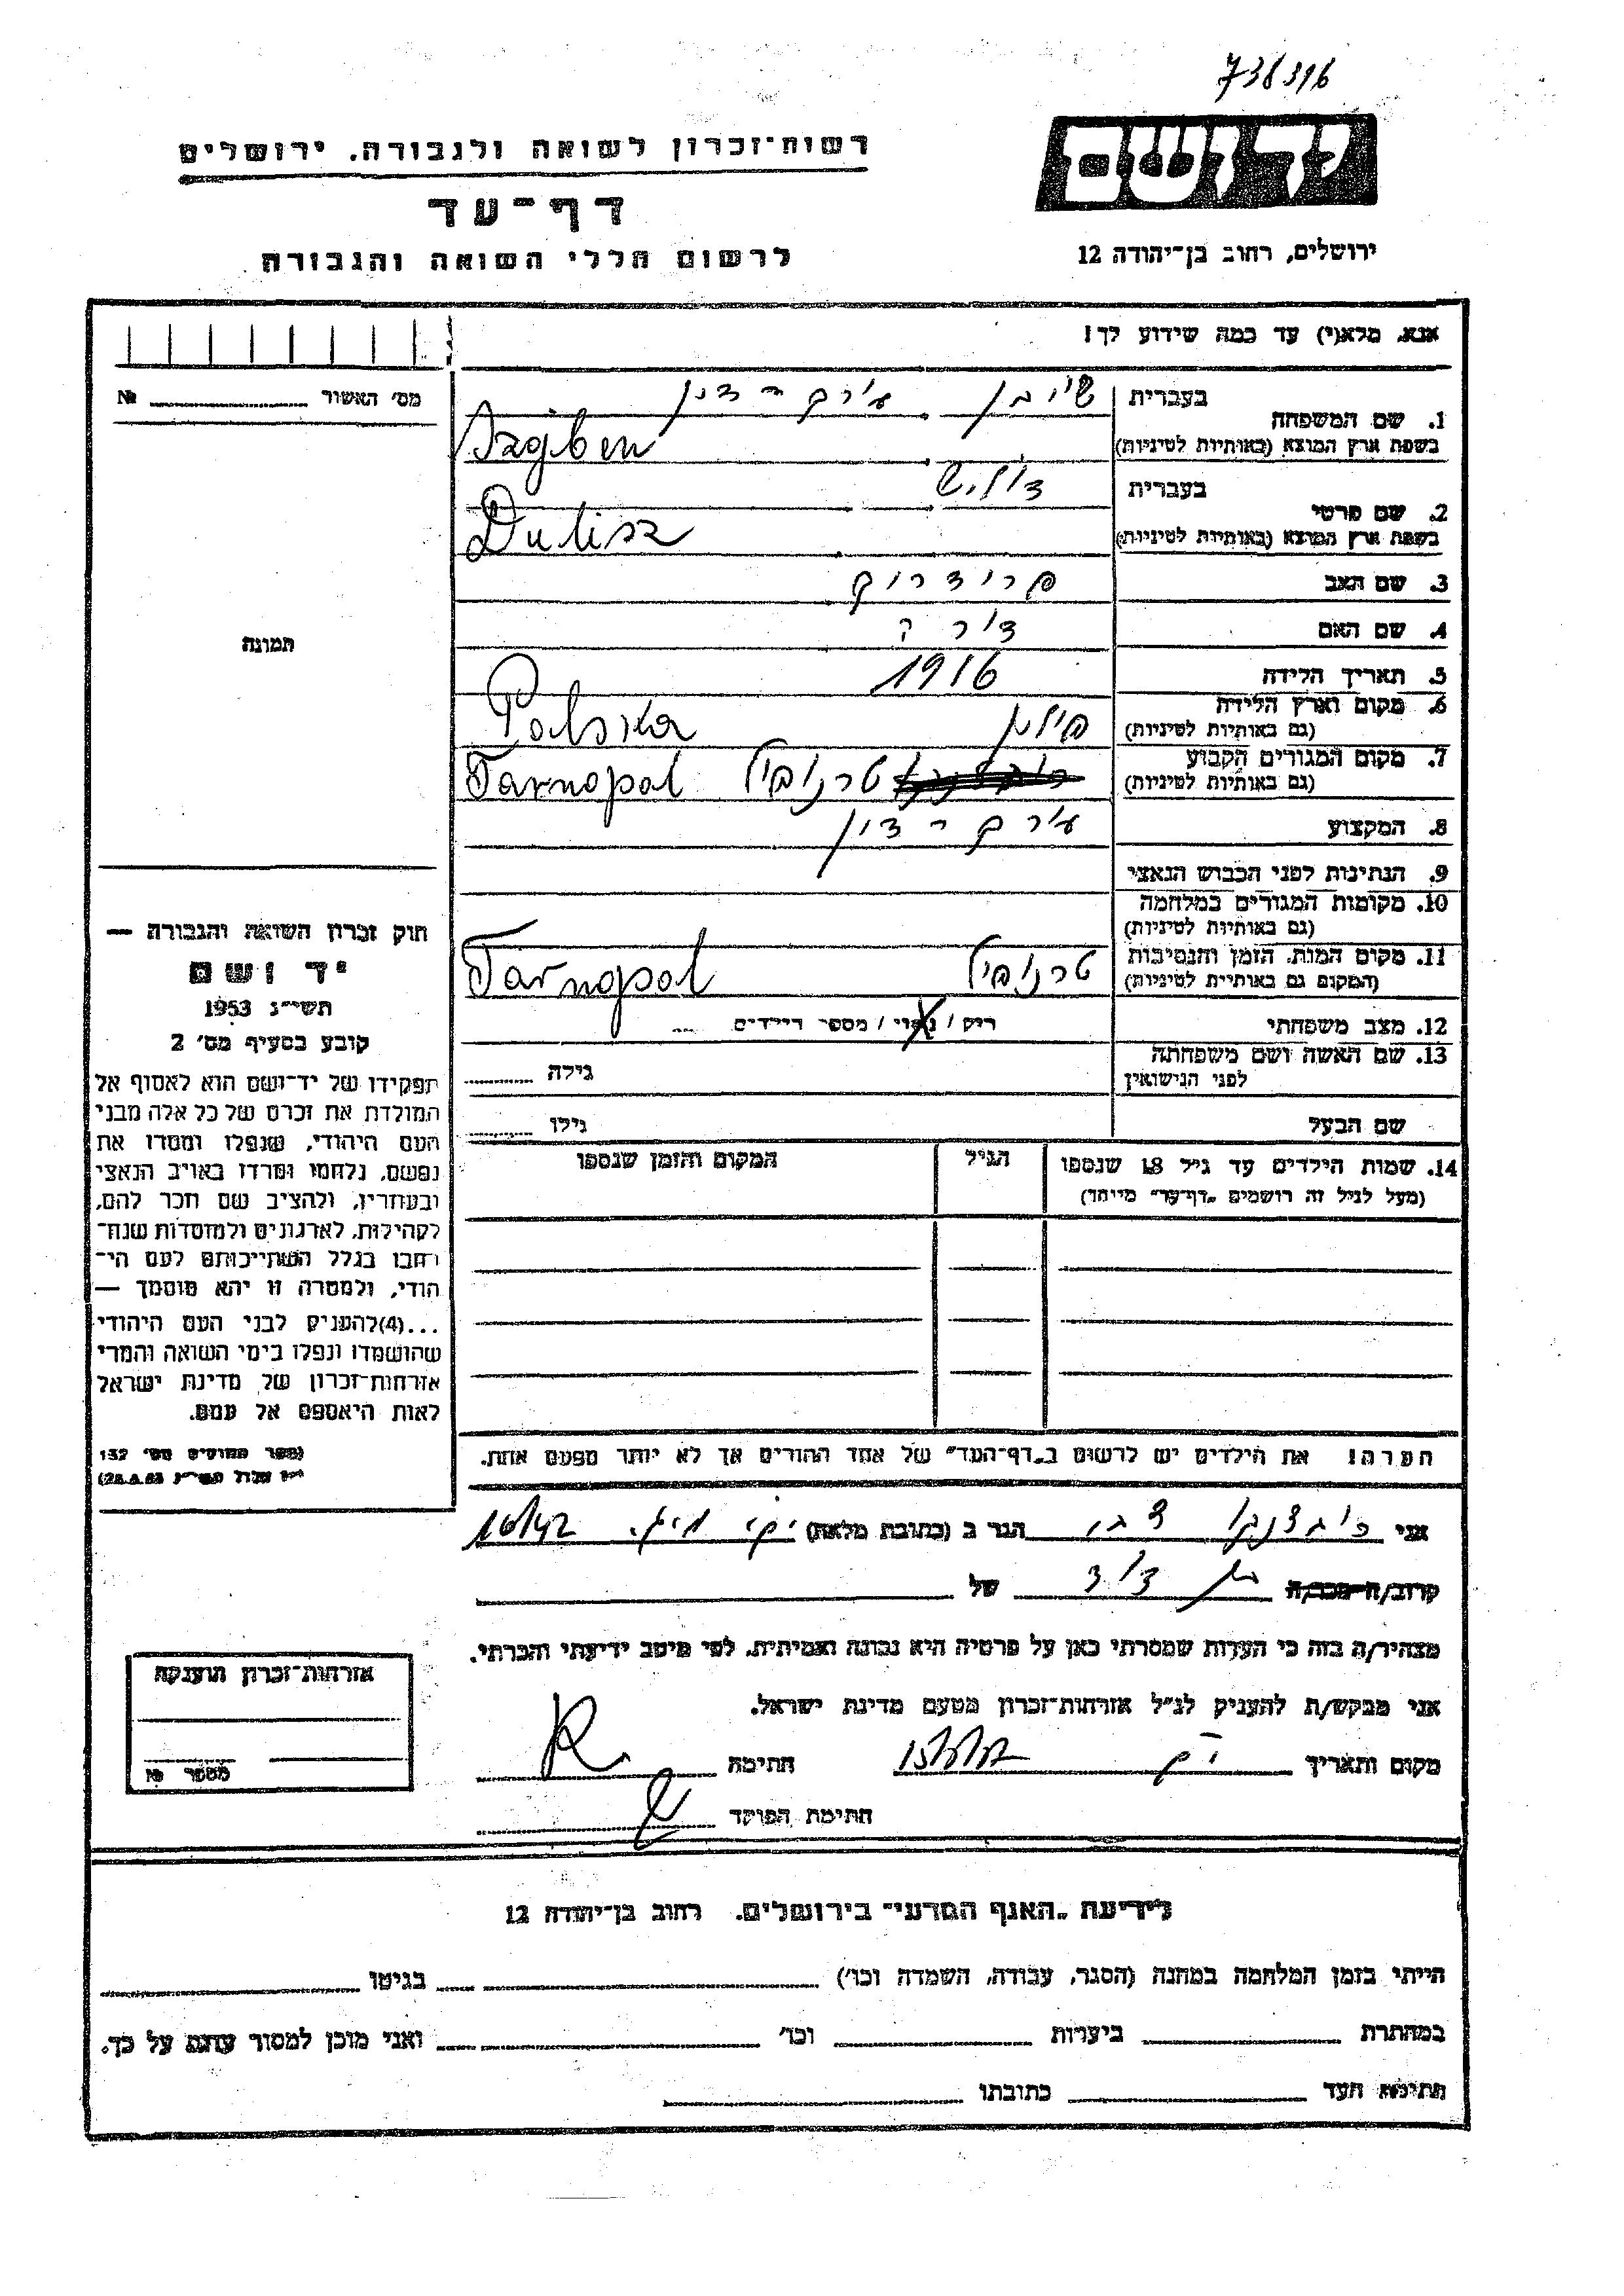 738396
יד ושם
ירושלים, רחוב בן־יהודה 12
רשות־זכרון לשואה ולגבורה. ירושלים
דף־עד
לרשום חללי השואה והגבורה
אנא, מלא(י) עד כמה שידוע לך!
מס' האשור №
1. שם המשפחה
בעברית שייבן עורך-דין
בשפת ארץ המוצא (באותיות לטיניות) Szajben
2. שם פרטי
בעברית דוליש
בשפת ארץ המוצא (באותיות לטיניות) Dulisz
3. שם האב
4. שם האם דורה
5. תאריך הלידה 1916
6. מקום וארץ הלידה
(גם באותיות לטיניות) פולין Polska
7. מקום המגורים הקבוע
(גם באותיות לטיניות) טרנופול Tarnopol
8. המקצוע עורך-דין
9. הנתינות לפני הכבוש הנאצי
10. מקומות המגורים במלחמה
(גם באותיות לטיניות)
11. מקום המות, הזמן והנסיבות
(המקום גם באותיות לטיניות) טרנופול Tarnopol
12. מצב משפחתי רוק / נשוי / מספר הילדים
13. שם האשה ושם משפחתה
לפני הנישואין גילה
שם הבעל גילו
14. שמות הילדים עד גיל 18 שנספו הגיל המקום והזמן שנספו
(מעל לגיל זה רושמים „דף־עד" מיוחד)
הערה! את הילדים יש לרשום ב„דף־העד" של אחד ההורים אך לא יותר מפעם אחת.
תמונה
חוק זכרון השואה והגבורה —
יד ושם
תשי"ג 1953
קובע בסעיף מס' 2
תפקידו של יד־ושם הוא לאסוף אל
המולדת את זכרם של כל אלה מבני
העם היהודי, שנפלו ומסרו את
נפשם, נלחמו ומרדו באויב הנאצי
ובעוזריו, ולהציב שם וזכר להם,
לקהילות, לארגונים ולמוסדות שנח־
רבו בגלל השתייכותם לעם הי־
הודי, ולמטרה זו יהא מוסמך —
...(4)להעניק לבני העם היהודי
שהושמדו ונפלו בימי השואה והמרי
אזרחות־זכרון של מדינת ישראל
לאות היאספם אל עמם.
(ספר החוקים מס' 132
י"ז אלול תשי"ג 28.8.53)
אני הגר ב (כתובת מלאה)
קרוב/ה־מכר/ה בן דוד של
מצהיר/ה בזה כי העדות שמסרתי כאן על פרטיה היא נכונה ואמיתית, לפי מיטב ידיעתי והכרתי.
אני מבקש/ת להעניק לנ"ל אזרחות־זכרון מטעם מדינת ישראל.
מקום ותאריך חתימה
חתימת הפוקד
אזרחות־זכרון הוענקה
מספר №
לידיעת „האגף המדעי" בירושלים. רחוב בן־יהודה 12
הייתי בזמן המלחמה במחנה (הסגר, עבודה, השמדה וכו') בגיטו
במחתרת ביערות וכו' ואני מוכן למסור עדותם על כך.
חתימת העד כתובתו